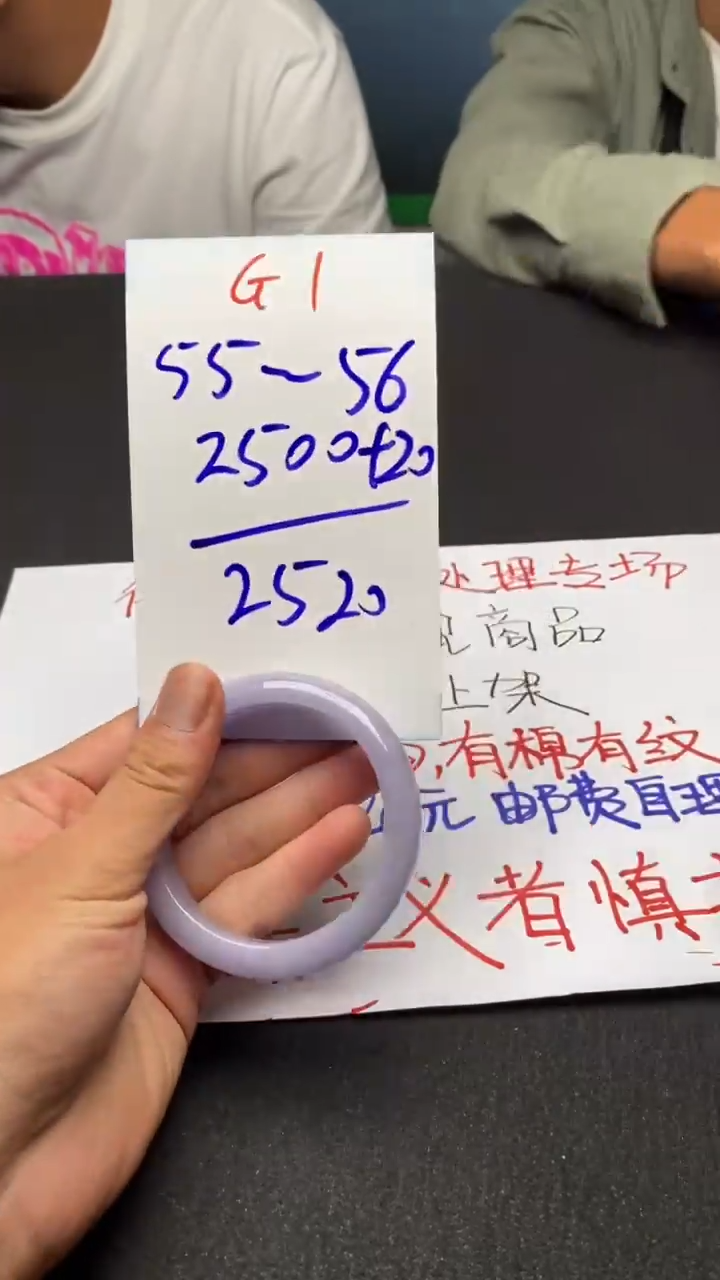 G1
55~56
2500+20
2520
处理专场
商品
上架
,有棉有纹
元 邮费自理
主义者慎